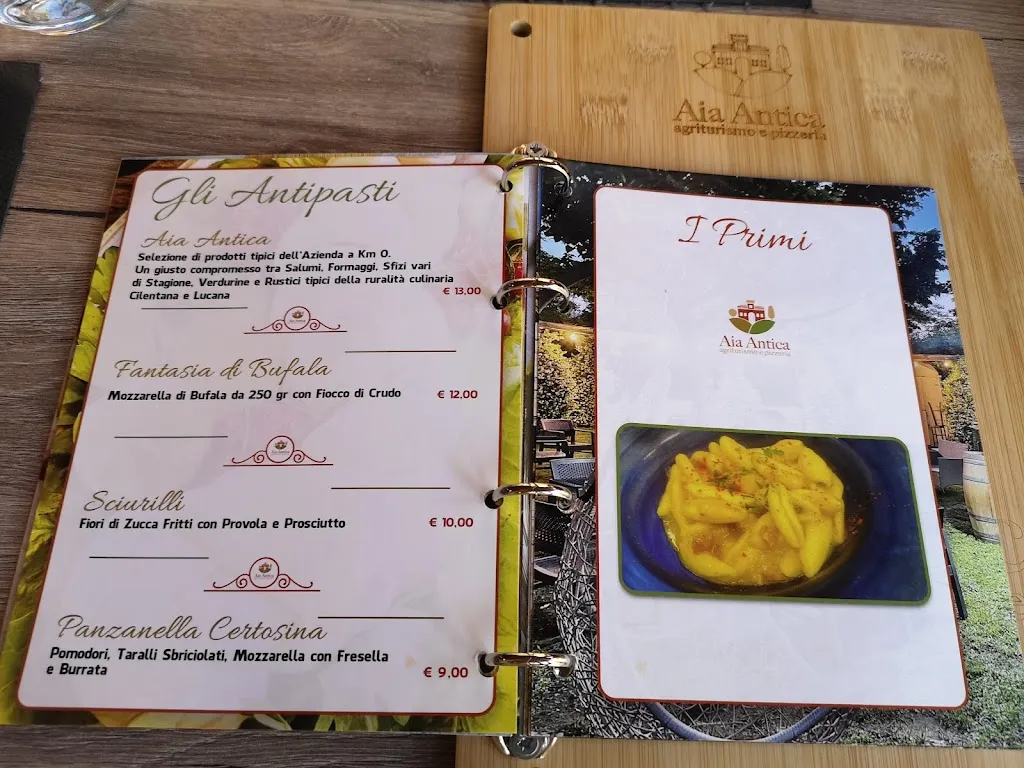 Aia Antica
agriturismo e pizzeria
Gli Antipasti
Aia Antica
Selezione di prodotti tipici dell'Azienda a Km 0.
Un giusto compromesso tra Salumi, Formaggi, Sfizi vari
di Stagione, Verdurine e Rustici tipici della ruralità culinaria
Cilentana e Lucana
€ 13,00
Fantasia di Bufala
Mozzarella di Bufala da 250 gr con Fiocco di Crudo € 12,00
Sciurilli
Fiori di Zucca Fritti con Provola e Prosciutto € 10,00
Panzanella Certosina
Pomodori, Taralli Sbriciolati, Mozzarella con Fresella
e Burrata
€ 9,00
I Primi
Aia Antica
agriturismo e pizzeria